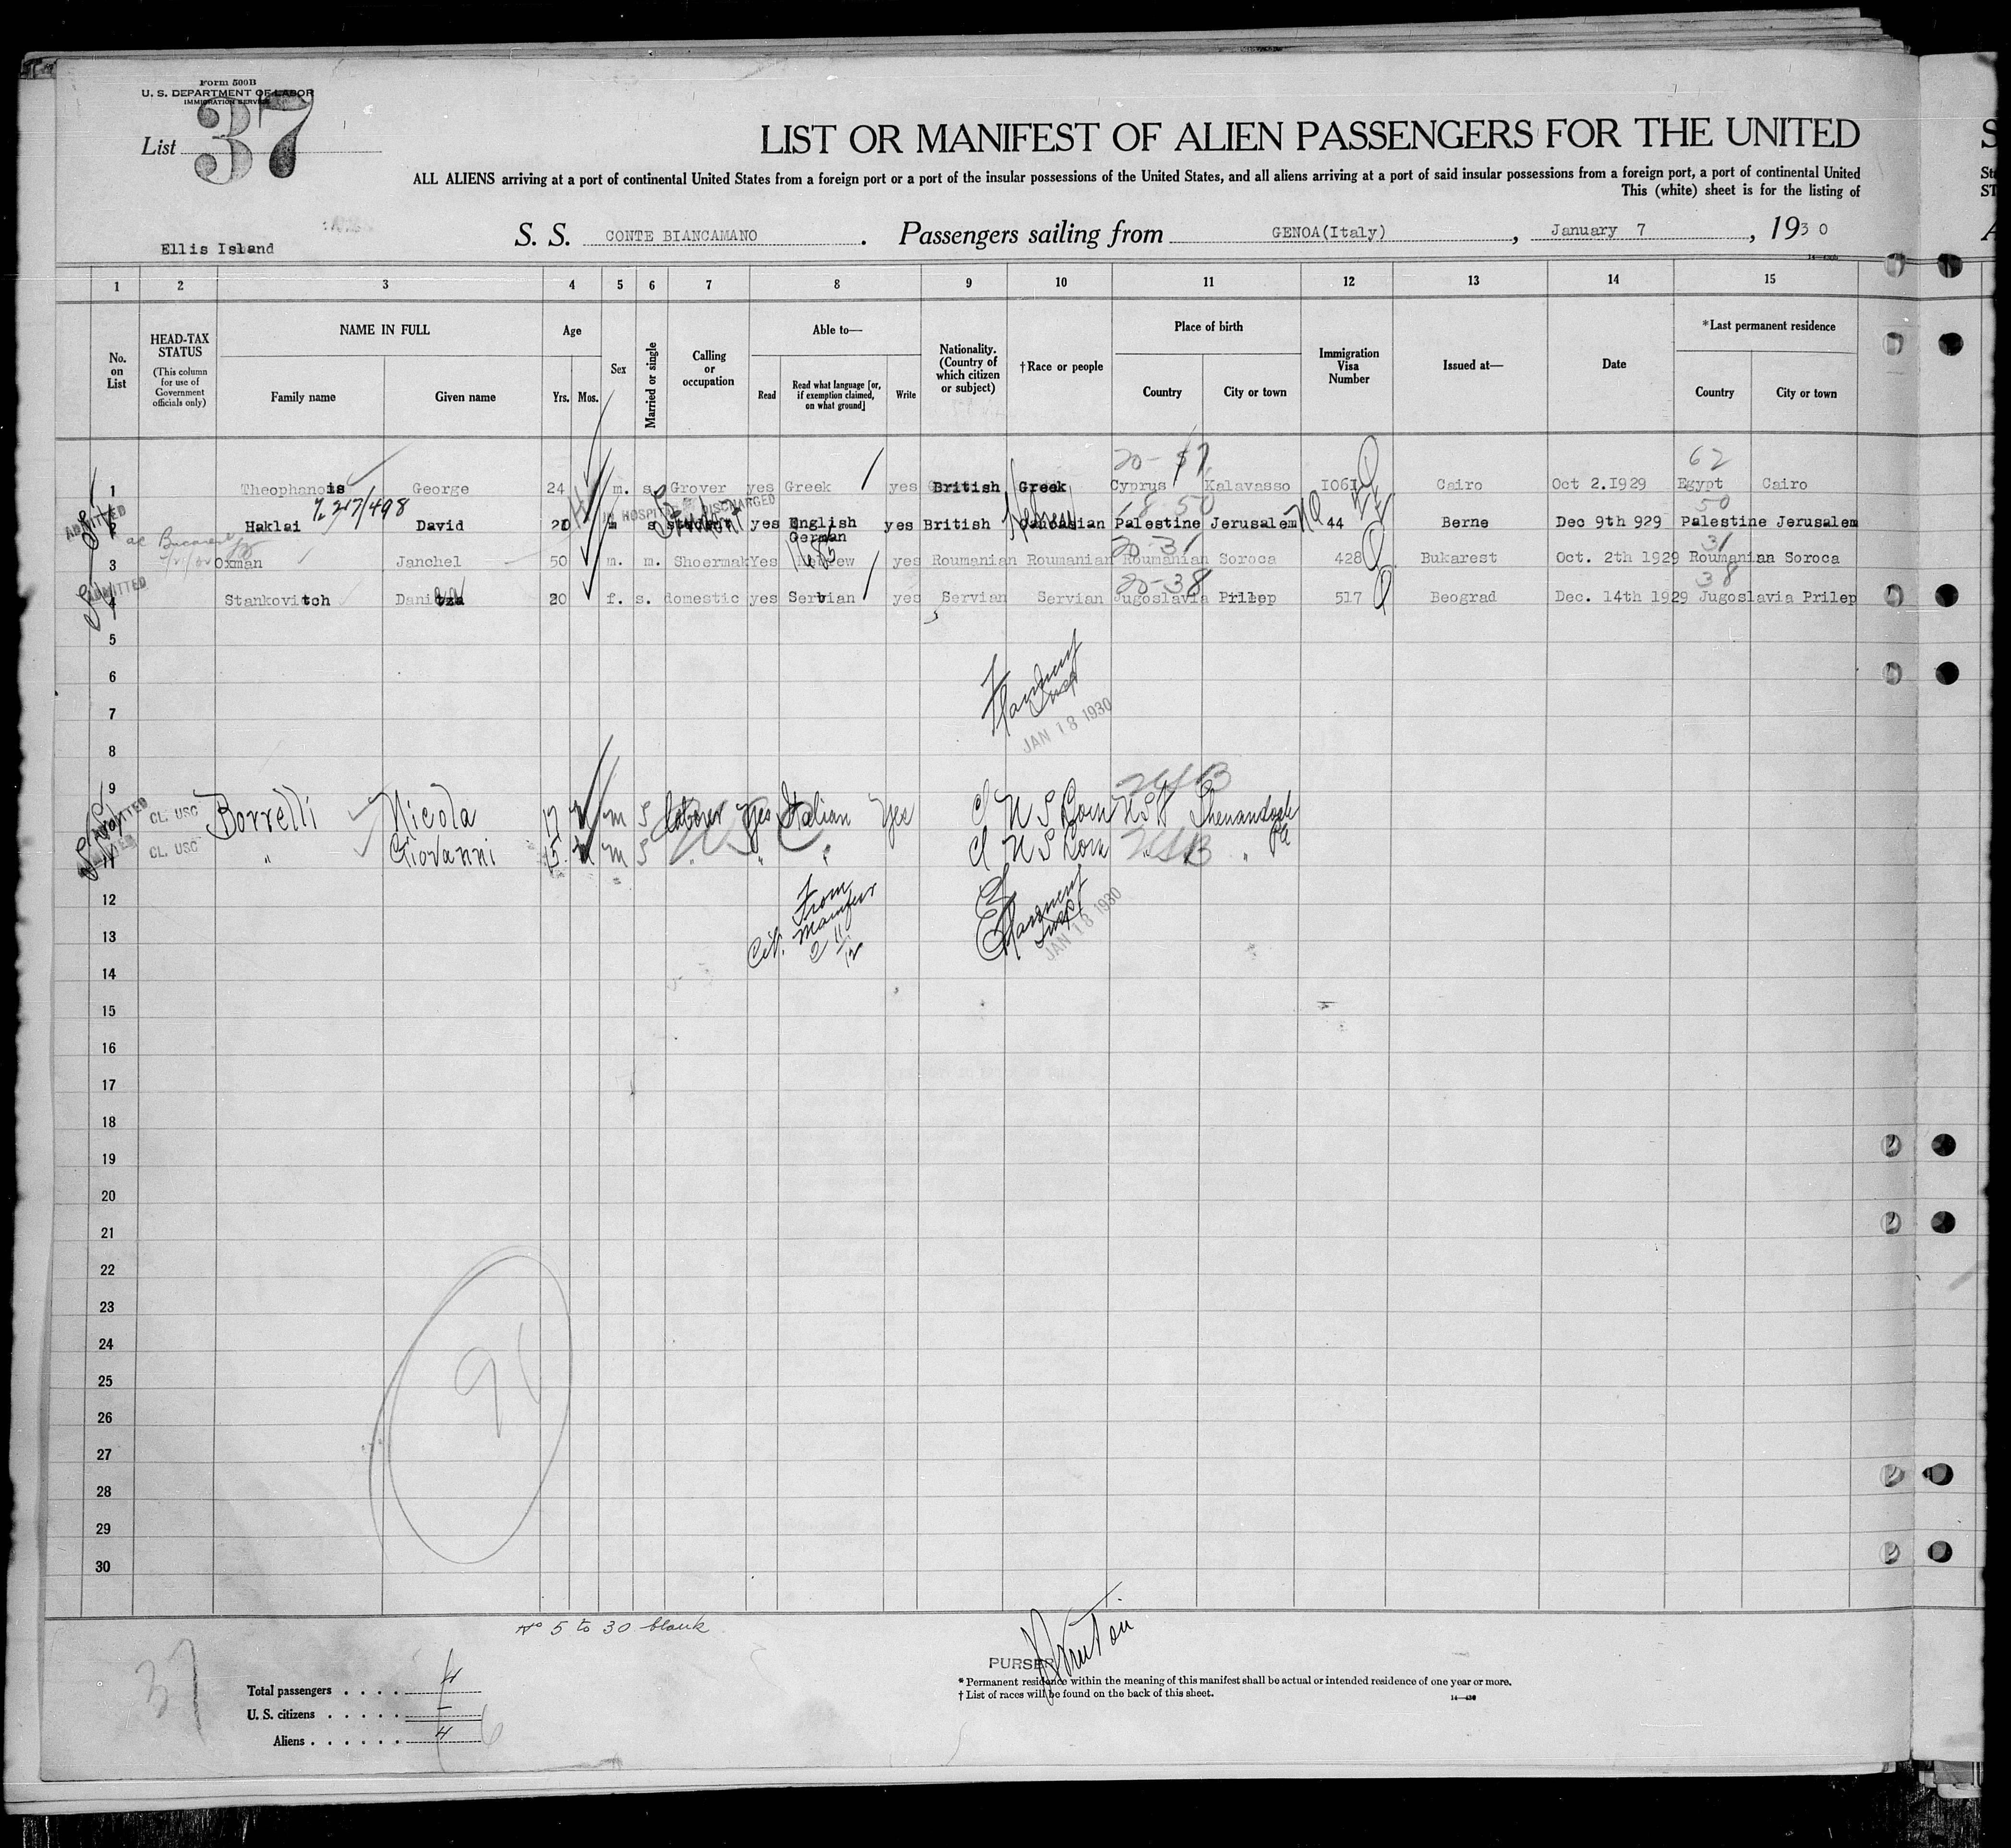 Form 500B
U. S. DEPARTMENT OF LABOR
IMMIGRATION SERVICE
List 37
LIST OR MANIFEST OF ALIEN PASSENGERS FOR THE UNITED
ALL ALIENS arriving at a port of continental United States from a foreign port or a port of the insular possessions of the United States, and all aliens arriving at a port of said insular possessions from a foreign port, a port of continental United
This (white) sheet is for the listing of
Ellis Island
S. S. CONTE BIANCAMANO. Passengers sailing from GENOA(Italy), January 7, 1930
1 2 3 4 5 6 7 8 9 10 11 12 13 14 15
No. on List
HEAD-TAX STATUS
(This column for use of Government officials only)
NAME IN FULL
Family name Given name
Age
Yrs. Mos.
Sex
Married or single
Calling or occupation
Able to—
Read
Read what language [or, if exemption claimed, on what ground]
Write
Nationality. (Country of which citizen or subject)
†Race or people
Place of birth
Country City or town
Immigration Visa Number
Issued at—
Date
*Last permanent residence
Country City or town
20-51 62
1 Theophanois George 24 m. s. Grover yes Greek yes British Greek Cyprus Kalavasso 1061 Cairo Oct 2.1929 Egypt Cairo
IN HOSPITAL DISCHARGED
18-50 50
ADMITTED
2 Haklai David 20 m s student yes English German yes British Caucasian Hebrew Palestine Jerusalem NQ 44 Berne Dec 9th 929 Palestine Jerusalem
20-31 31
3 Oxman Janchel 50 m. m. Shoermak Yes Hebrew yes Roumanian Roumanian Roumanian Soroca 428 Bukarest Oct. 2th 1929 Roumanian Soroca
20-38 38
ADMITTED
4 Stankovitch Danitza 20 f. s. domestic yes Serbian yes Servian Servian Jugoslavia Prilep 517 Beograd Dec. 14th 1929 Jugoslavia Prilep
5
6
7
JAN 18 1930
8
9
USB
ADMITTED CL. USC Borrelli Nicola 17 m S laborer yes Italian Yes U S Born U S A Shenandoah
ADMITTED CL. USC " Giovanni 15 m S " " " U S Born USB " Pa
11
12
13
From Manifest
JAN 18 1930
14
15
16
17
18
19
20
21
22
23
24
25
26
27
28
29
30
No 5 to 30 blank
37
PURSER
Total passengers 4
U. S. citizens —
Aliens 4 6
* Permanent residence within the meaning of this manifest shall be actual or intended residence of one year or more.
† List of races will be found on the back of this sheet.